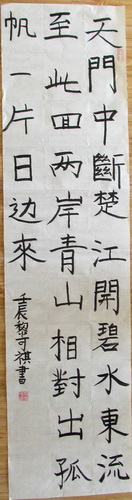 天門中斷楚江開碧水東流
至此回兩岸青山相對出孤
帆一片日边來
壬辰黎可祺書